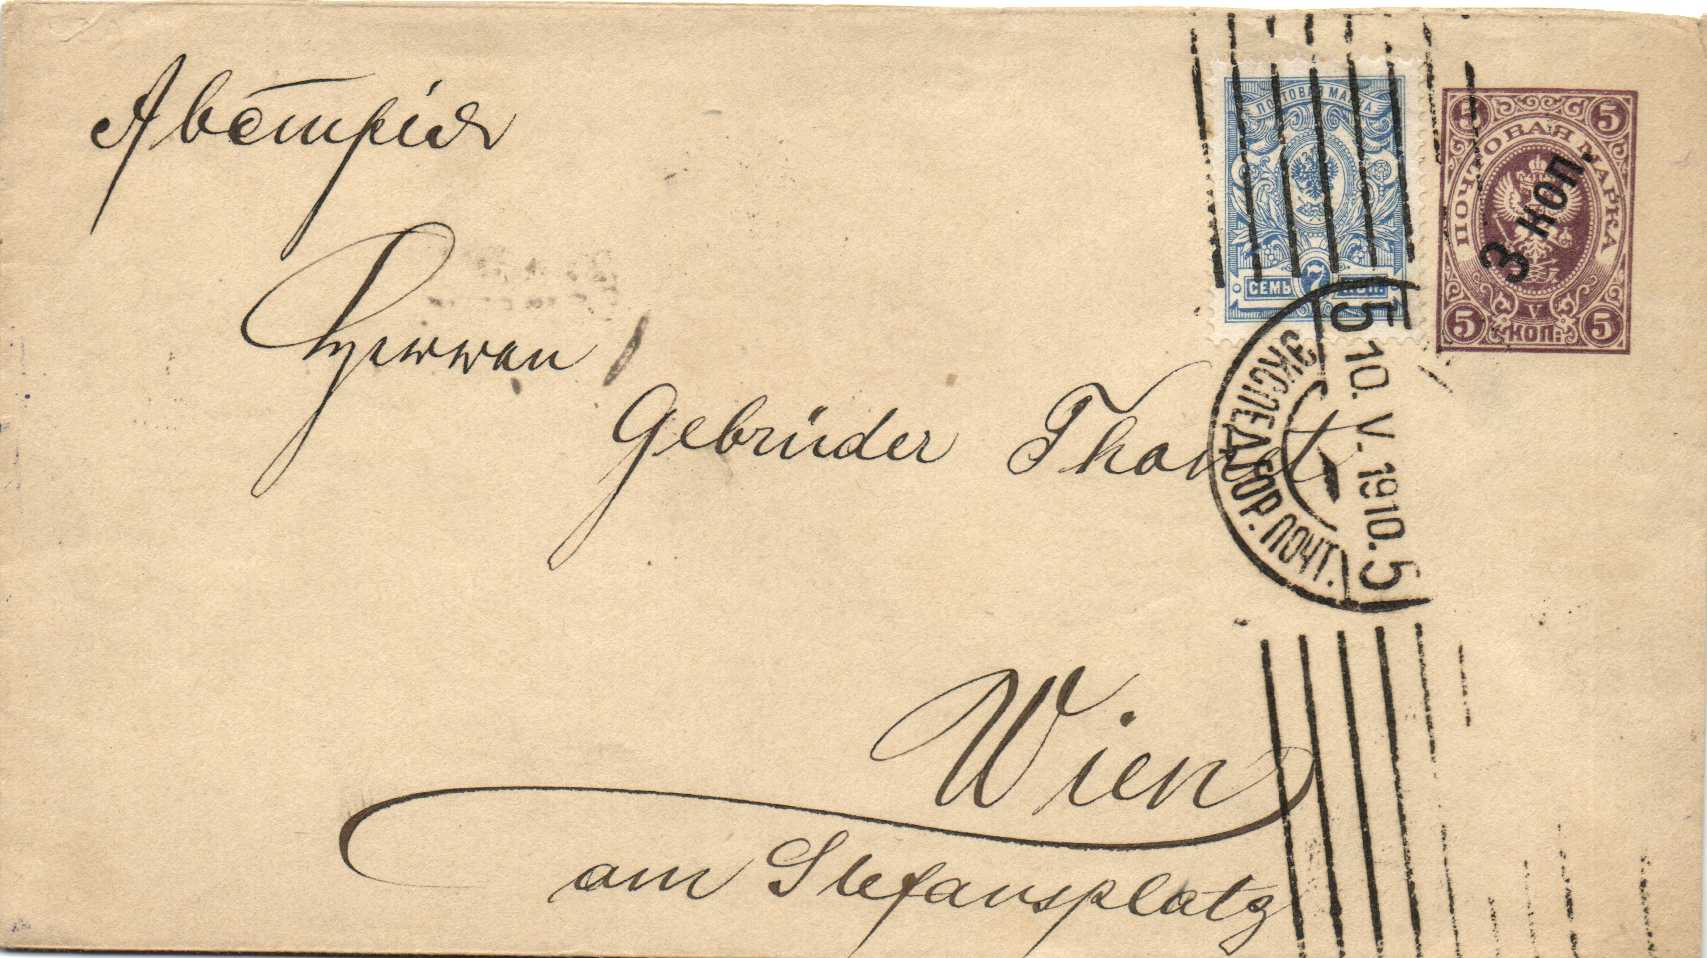 Австрія
Gebrüder Thonet
Wien
am Stefansplatz
ПОЧТОВАЯ МАРКА
СЕМЬ 7 КОП.
ПОЧТОВАЯ МАРКА
5 5
3 коп.
5 КОП. 5
V
5 10. V. 1910. 5
ЭКСПЕД. ГОР. ПОЧТ.